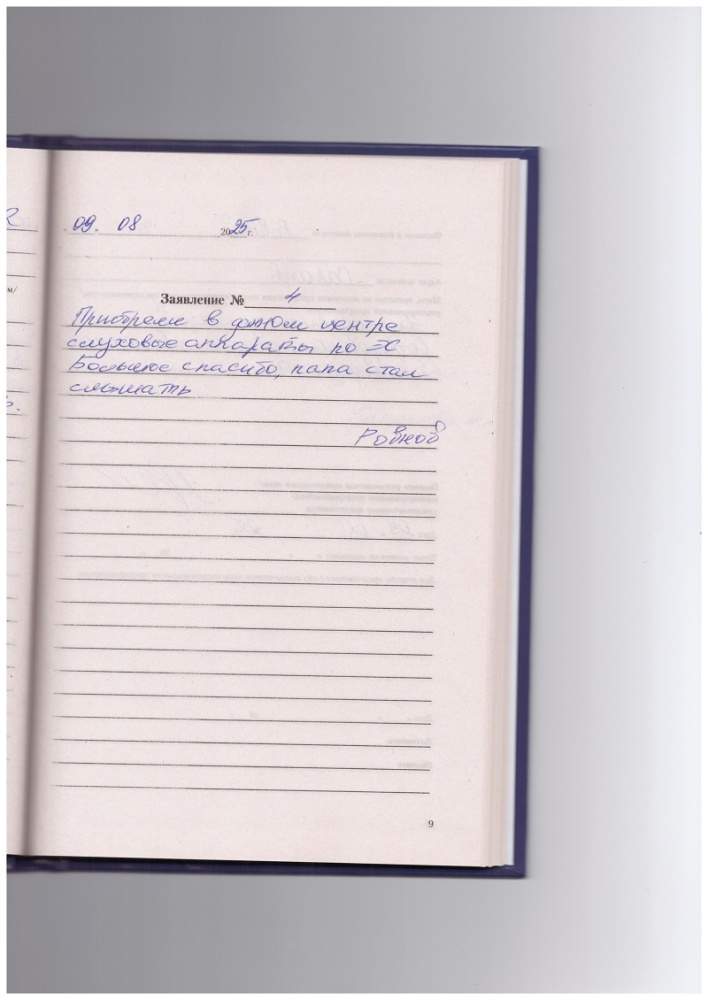 09. 08 2025 г.
Заявление № 4
Приобрели в данном центре
слуховые аппараты по ЭС
Большое спасибо, папа стал
слышать
9